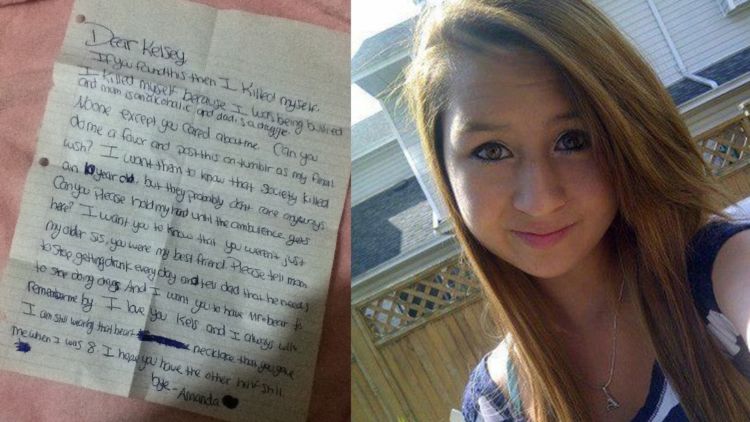 Dear Kelsey,
If you found this then I killed myself.
I killed myself because I was being bullied
and mum is an alcoholic and dad is a druggie.
No one except you cared about me. Can you
do me a favor and post this on tumblr as my final
wish? I want them to know that society killed
an 10 year old, but they probably dont care anyways
Can you please hold my hand until the ambulence gets
here? I want you to know that you werent just
my older sis, you were my best friend. Please tell mom
to stop getting drunk every day and tell dad that he needs
to stop doing drugs. And I want you to have Mr bear to
remember me by. I love you Kels and I always will.
I am still wearing that heart necklace that you gave
me when I was 8. I hope you have the other half still.
bye - Amanda